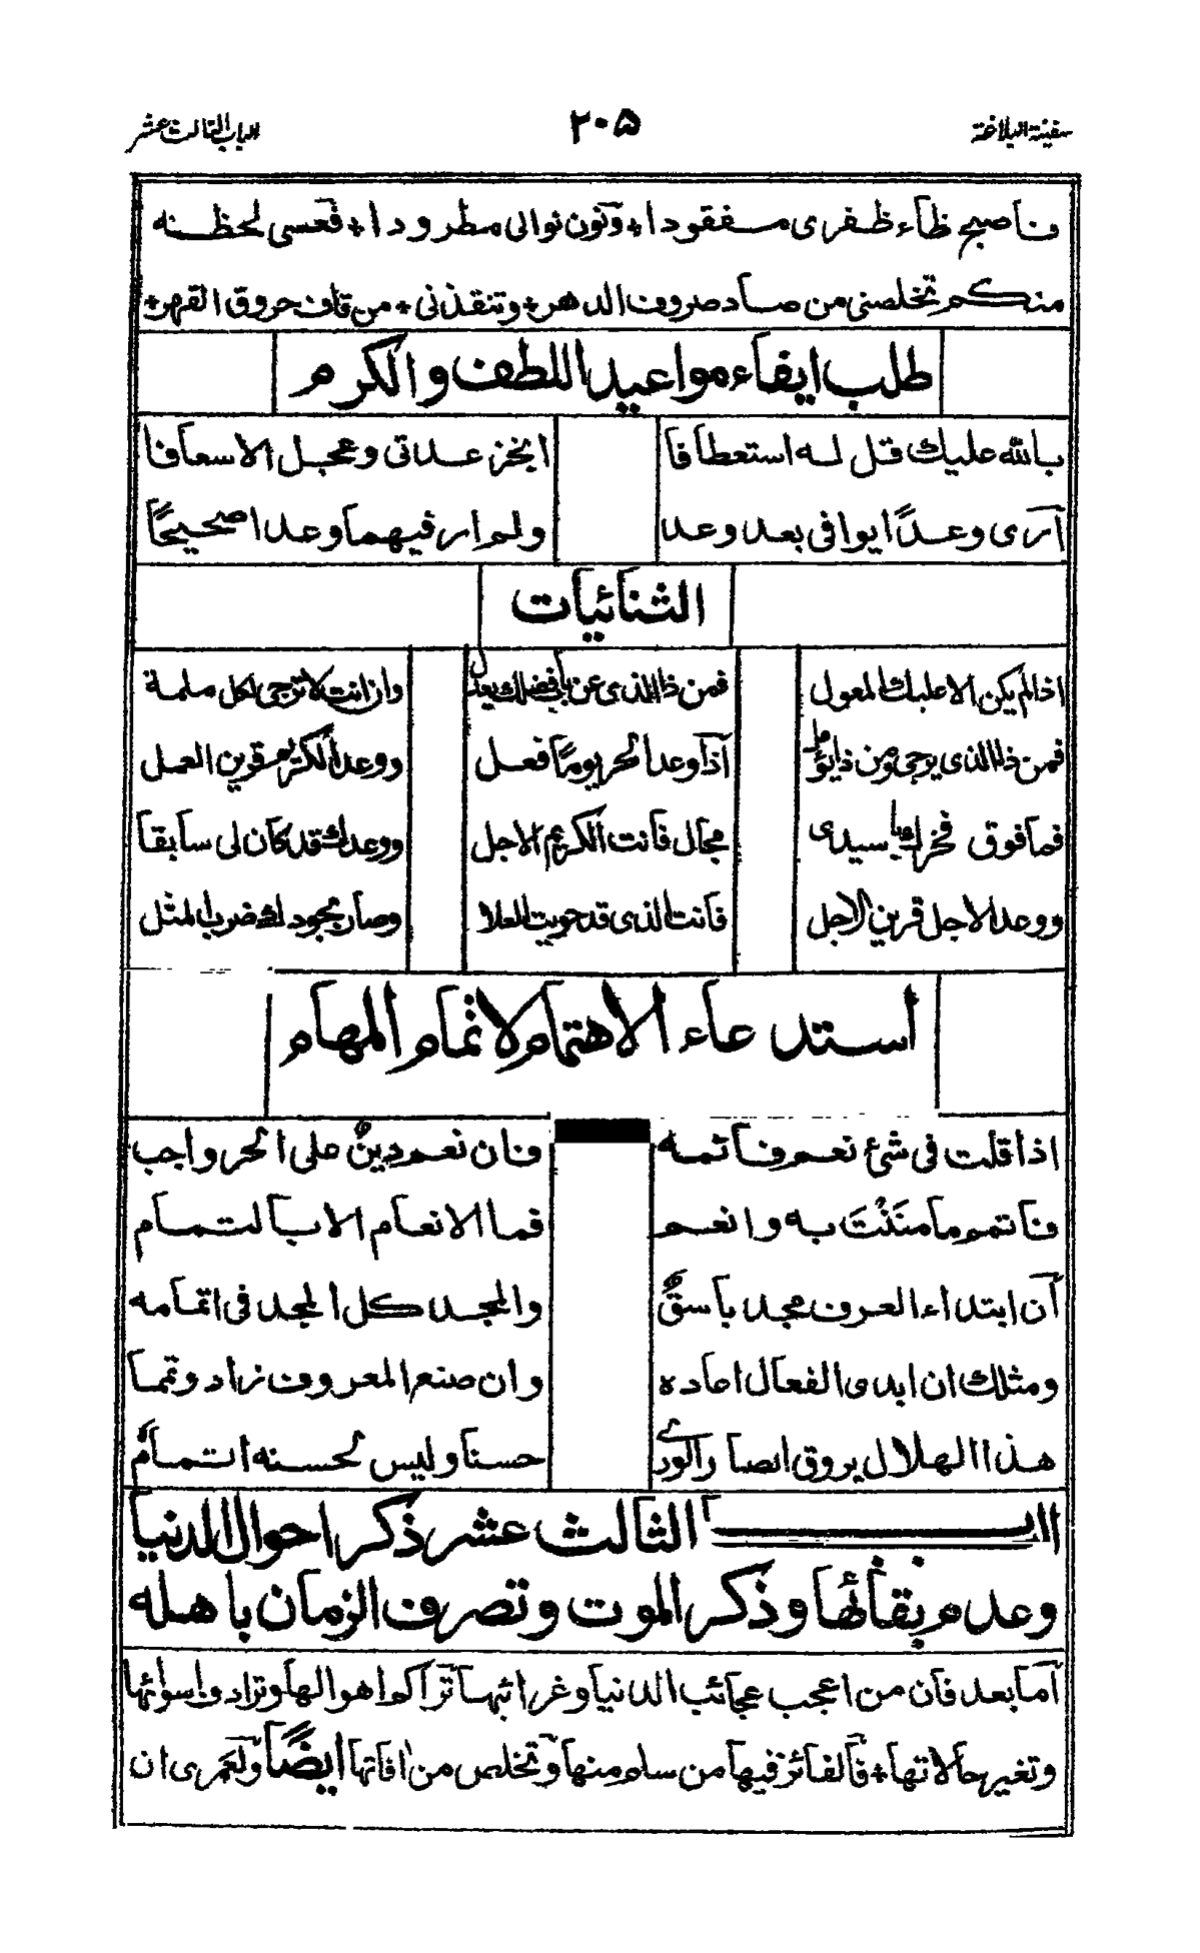 سفينة البلاغة
٢٠٥
الباب الثالث عشر
فاصبح ظاء ظفرى مفقودا + ونون نوالى مطرودا + فعسى لحظنه
منكم تخلصنى من صاد صروف الدهر + وتنقذنى + من قاف حروق القهر +
طلب ايفاء مواعيد اللطف والكرم
بالله عليك قل له استعطافا انجز عداتى وعجل الاسعافا
أرى وعدًا يوافى بعد وعد ولم ار فيهما وعدا صحيحًا
الثنائيات
اذا لم يكن الا عليك المعول فمن ذا الذى عن باب فضلك يعدل وان انت لا ترجى لكل ملمة
فمن ذا الذى يرجى ومن ذا يؤمل اذا وعد الحر يومًا فعل ووعد الكريم قرين العمل
فما فوق فخرك يا سيدى مجال فانت الكريم الاجل ووعدك قد كان لى سابقا
ووعد الاجل قرين الاجل فانت الذى قد حويت العلا وصار بجودك ضرب المثل
استدعاء الاهتمام لاتمام المهام
اذا قلت فى شئ نعم فاتمه فان نعم دينٌ على الحر واجب
فاتمم ما مننتَ به وانعم فما الانعام الا بالتمام
ان ابتداء العرف مجد باسقٌ والمجد كل المجد فى اتمامه
ومثلك ان ابدى الفعال اعاده وان صنع المعروف زاد وتمما
هذا الهلال يروق ابصار الورى حسنا وليس لحسنه اتمامٌ
الباب الثالث عشر ذكر احوال الدنيا
وعدم بقائها وذكر الموت وتصرف الزمان باهله
اما بعد فان من اعجب عجائب الدنيا وغرائبها تراكم اهوالها وترادف اسوائها
وتغير حالاتها + فالفائز فيها من سلم منها وتخلص من افاتها ايضًا ولعمرى ان